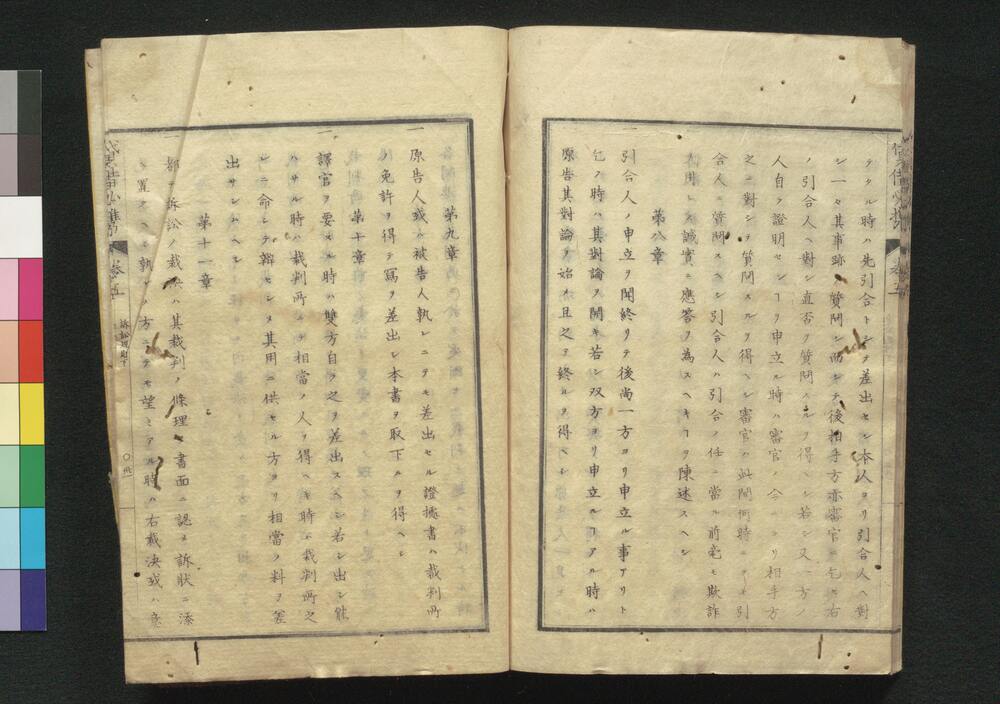 タル時ハ先引合トシテ差出セシ本人ヨリ引合人ヘ對
シ一々其事跡ヲ質問シ而シテ後相手方亦審官ニ乞ヒ右
ノ引合人ヘ對シ直否ヲ質問スルヲ得ヘシ若シ又一方ノ
人自ラ證明センヿヲ申立ル時ハ審官ノ令ニヨリ相手方
之ニ對シテ質問スルヲ得ヘシ審官ハ此間何時ニテモ引
合人ニ質問スヘシ引合人ハ引合ノ任ニ當ル前毫モ欺詐
ヲ用ヒス誠實ニ應答ヲ為スヘキヿヲ陳述スヘシ
第八章
一引合人ノ申立ヲ聞終リテ後尚一方ヨリ申立ル事アリト
乞フ時ハ其對論ヲ聞キ若シ双方ヨリ申立ルヿアル時ハ
原告其對論ヲ始メ且之ヲ終ルヲ得ヘシ
第九章
一原告人或ハ被告人孰レニテモ差出セル證據書ハ裁判所
ノ免許ヲ得テ寫ヲ差出シ本書ヲ取下ルヲ得ヘシ
第十章
一譯官ヲ要スル時ハ雙方自ラ之ヲ差出スヘシ若シ出シ能
ハサル時ハ裁判所ニテ相當ノ人ヲ得ヘキ時ハ裁判所之
レニ命シテ譯セシメ其用ニ供セル方ヨリ相當ノ料ヲ差
出サシムヘシ
第十一章
一都テ訴訟ノ裁決ハ其裁判ノ條理ヲ書面ニ認メ訴狀ニ添
ヘ置クヘシ孰レノ方ニテモ望ミアル時ハ右裁決或ハ意